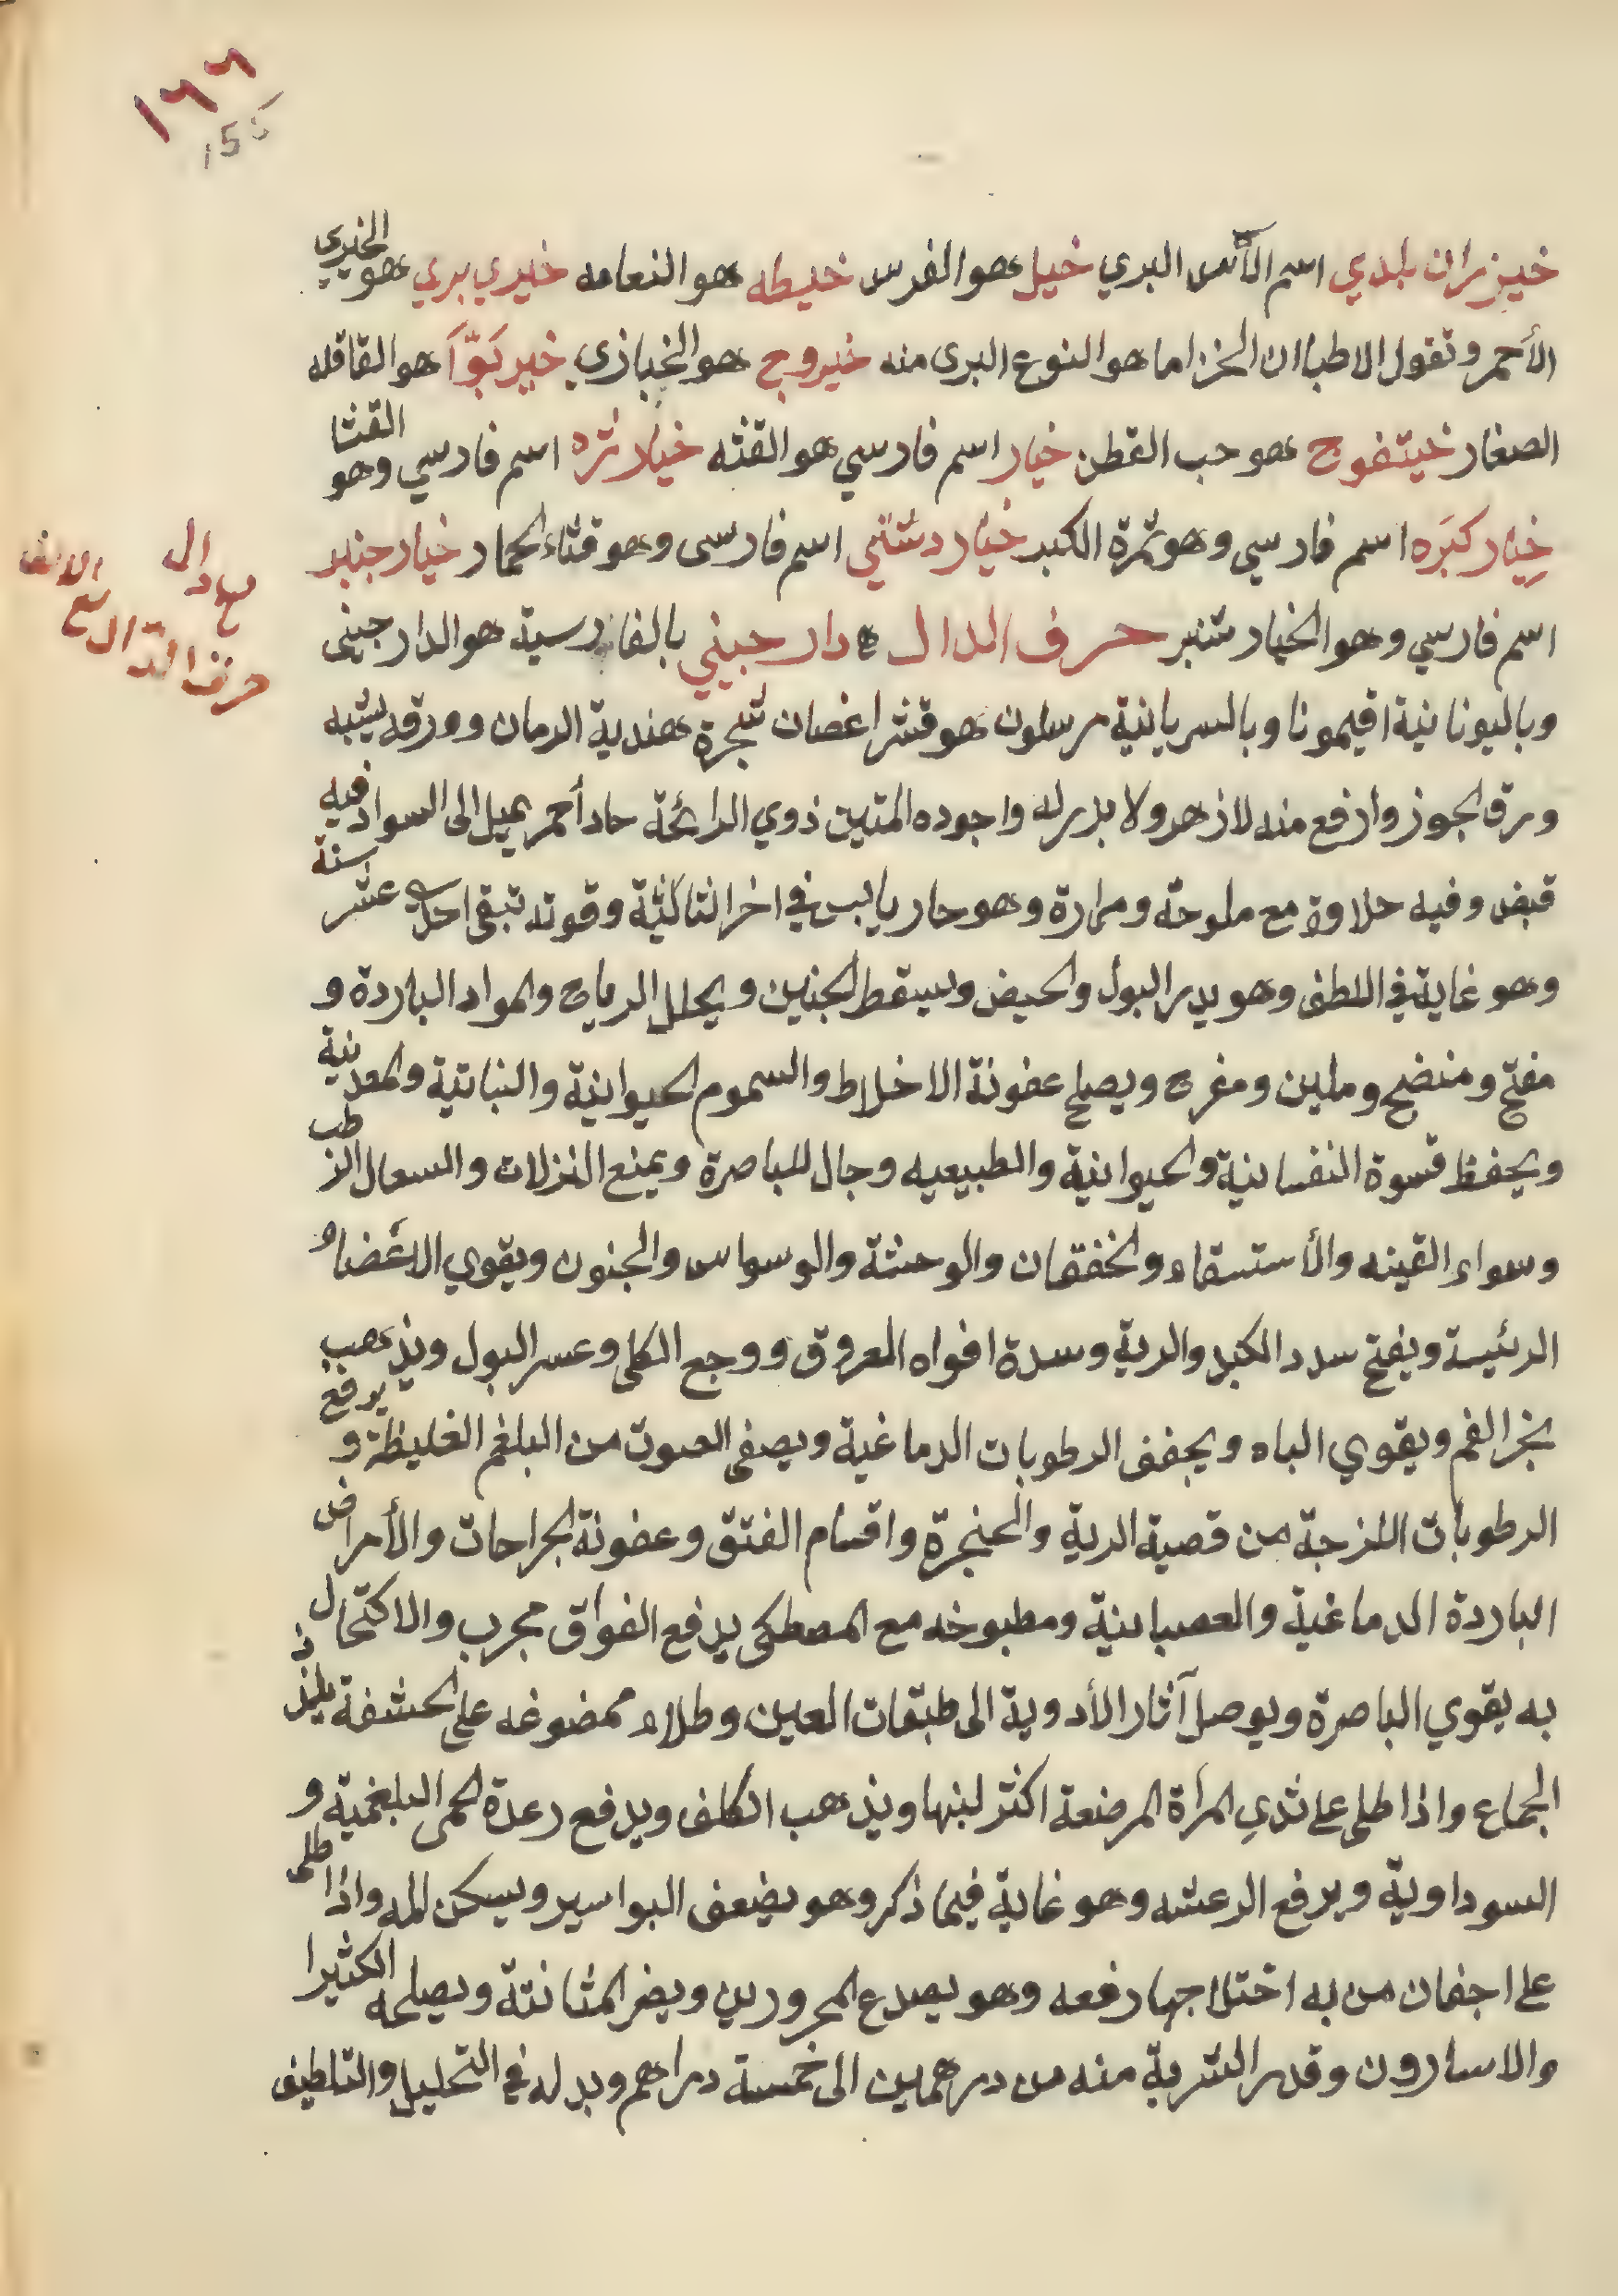 ١٦٦
155
خيزران بلدي اسم الآس البري خيل هو الفرس خيطه هو النعامه خيري بري هو الخيري
الأحمر وتقول الاطبا ان الخزاما هو النوع البرى منه خيروج هو الخبازي خير بَوَّآ هو القاقله
الصغار خيتفوج هو حب القطن خيار اسم فارسي هو القثه خيار تره اسم فارسي وهو القثا
خِيار كَبَره اسم فارسي وهو ثمرة الكبر خيار دشتي اسم فارسى وهو قثاء الحمار خيار جنبر
اسم فارسي وهو الخيار شنبر حرف الدال دار جيني بالفارسية هو الدارجينى
وباليونانية افيمونا وبالسريانية مرسلون هو قشر اغصان شجرة هندية الرمان وورقه يشبه
ورق الجوز وارفع منه لا زهر ولا بزر له واجوده المتين ذوي الرائحة حاد أحمر يميل الى السواد فيه
قبض وفيه حلاوة مع ملوحة ومرارة وهو حار يابس في اخر الثالثية وقوته تبقى احدى عشر سنة
وهو غاية في اللطف وهو يدر البول والحيض ويسقط الجنين ويحلل الرياح والمواد الباردة و
مفتح ومنضج وملين ومفرح ويصلح عفونة الاخلاط والسموم الحيوانية والنباتية والمعدنية
ويحفظ قسوة النفسانية والحيوانية والطبيعيه وجال للباصرة ويمنع النزلات والسعال الرطب
وسواء القينه والأستسقاء والخفقان والوحشة والوسواس والجنون ويقوي الأعضاء
الرئيسة ويفتح سدد الكبد والرية وسدة افواه العروق ووجع الكلى وعسر البول ويذهب
بخر الفم ويقوي الباه ويجفف الرطوبات الدماغية ويصفى الصوت من البلغم الغليظة ويرفع
الرطوبات اللزجة من قصبة الرية والحنجرة واقسام الفتق وعفونة الجراحات والأمراض
الباردة الدماغية والعصبانية ومطبوخه مع المصطكى يدفع الفواق مجرب والاكتحال
به يقوي الباصرة ويوصل آثار الأدوية الى طبقات العين وطلاء ممضوغه على الحشفة يلذذ
الجماع واذا طلى على ثدي المرأة المرضعة اكثر لبنها ويذهب الكلف ويدفع رعدة الحمى البلغمية و
السوداوية ويرفع الرعشه وهو غاية فيما ذكر وهو يضعف البواسير ويسكن المه واذا طلى
على اجفان من به اختلاجها رفعه وهو يصدع المحرورين ويضر المثانتة ويصلحه الكثيرا
والاسارون وقدر الشربة منه من درهمين الى خمسة دراهم وبدله في التحليل والتلطيف
حرف الدال مع الالف
مع دال